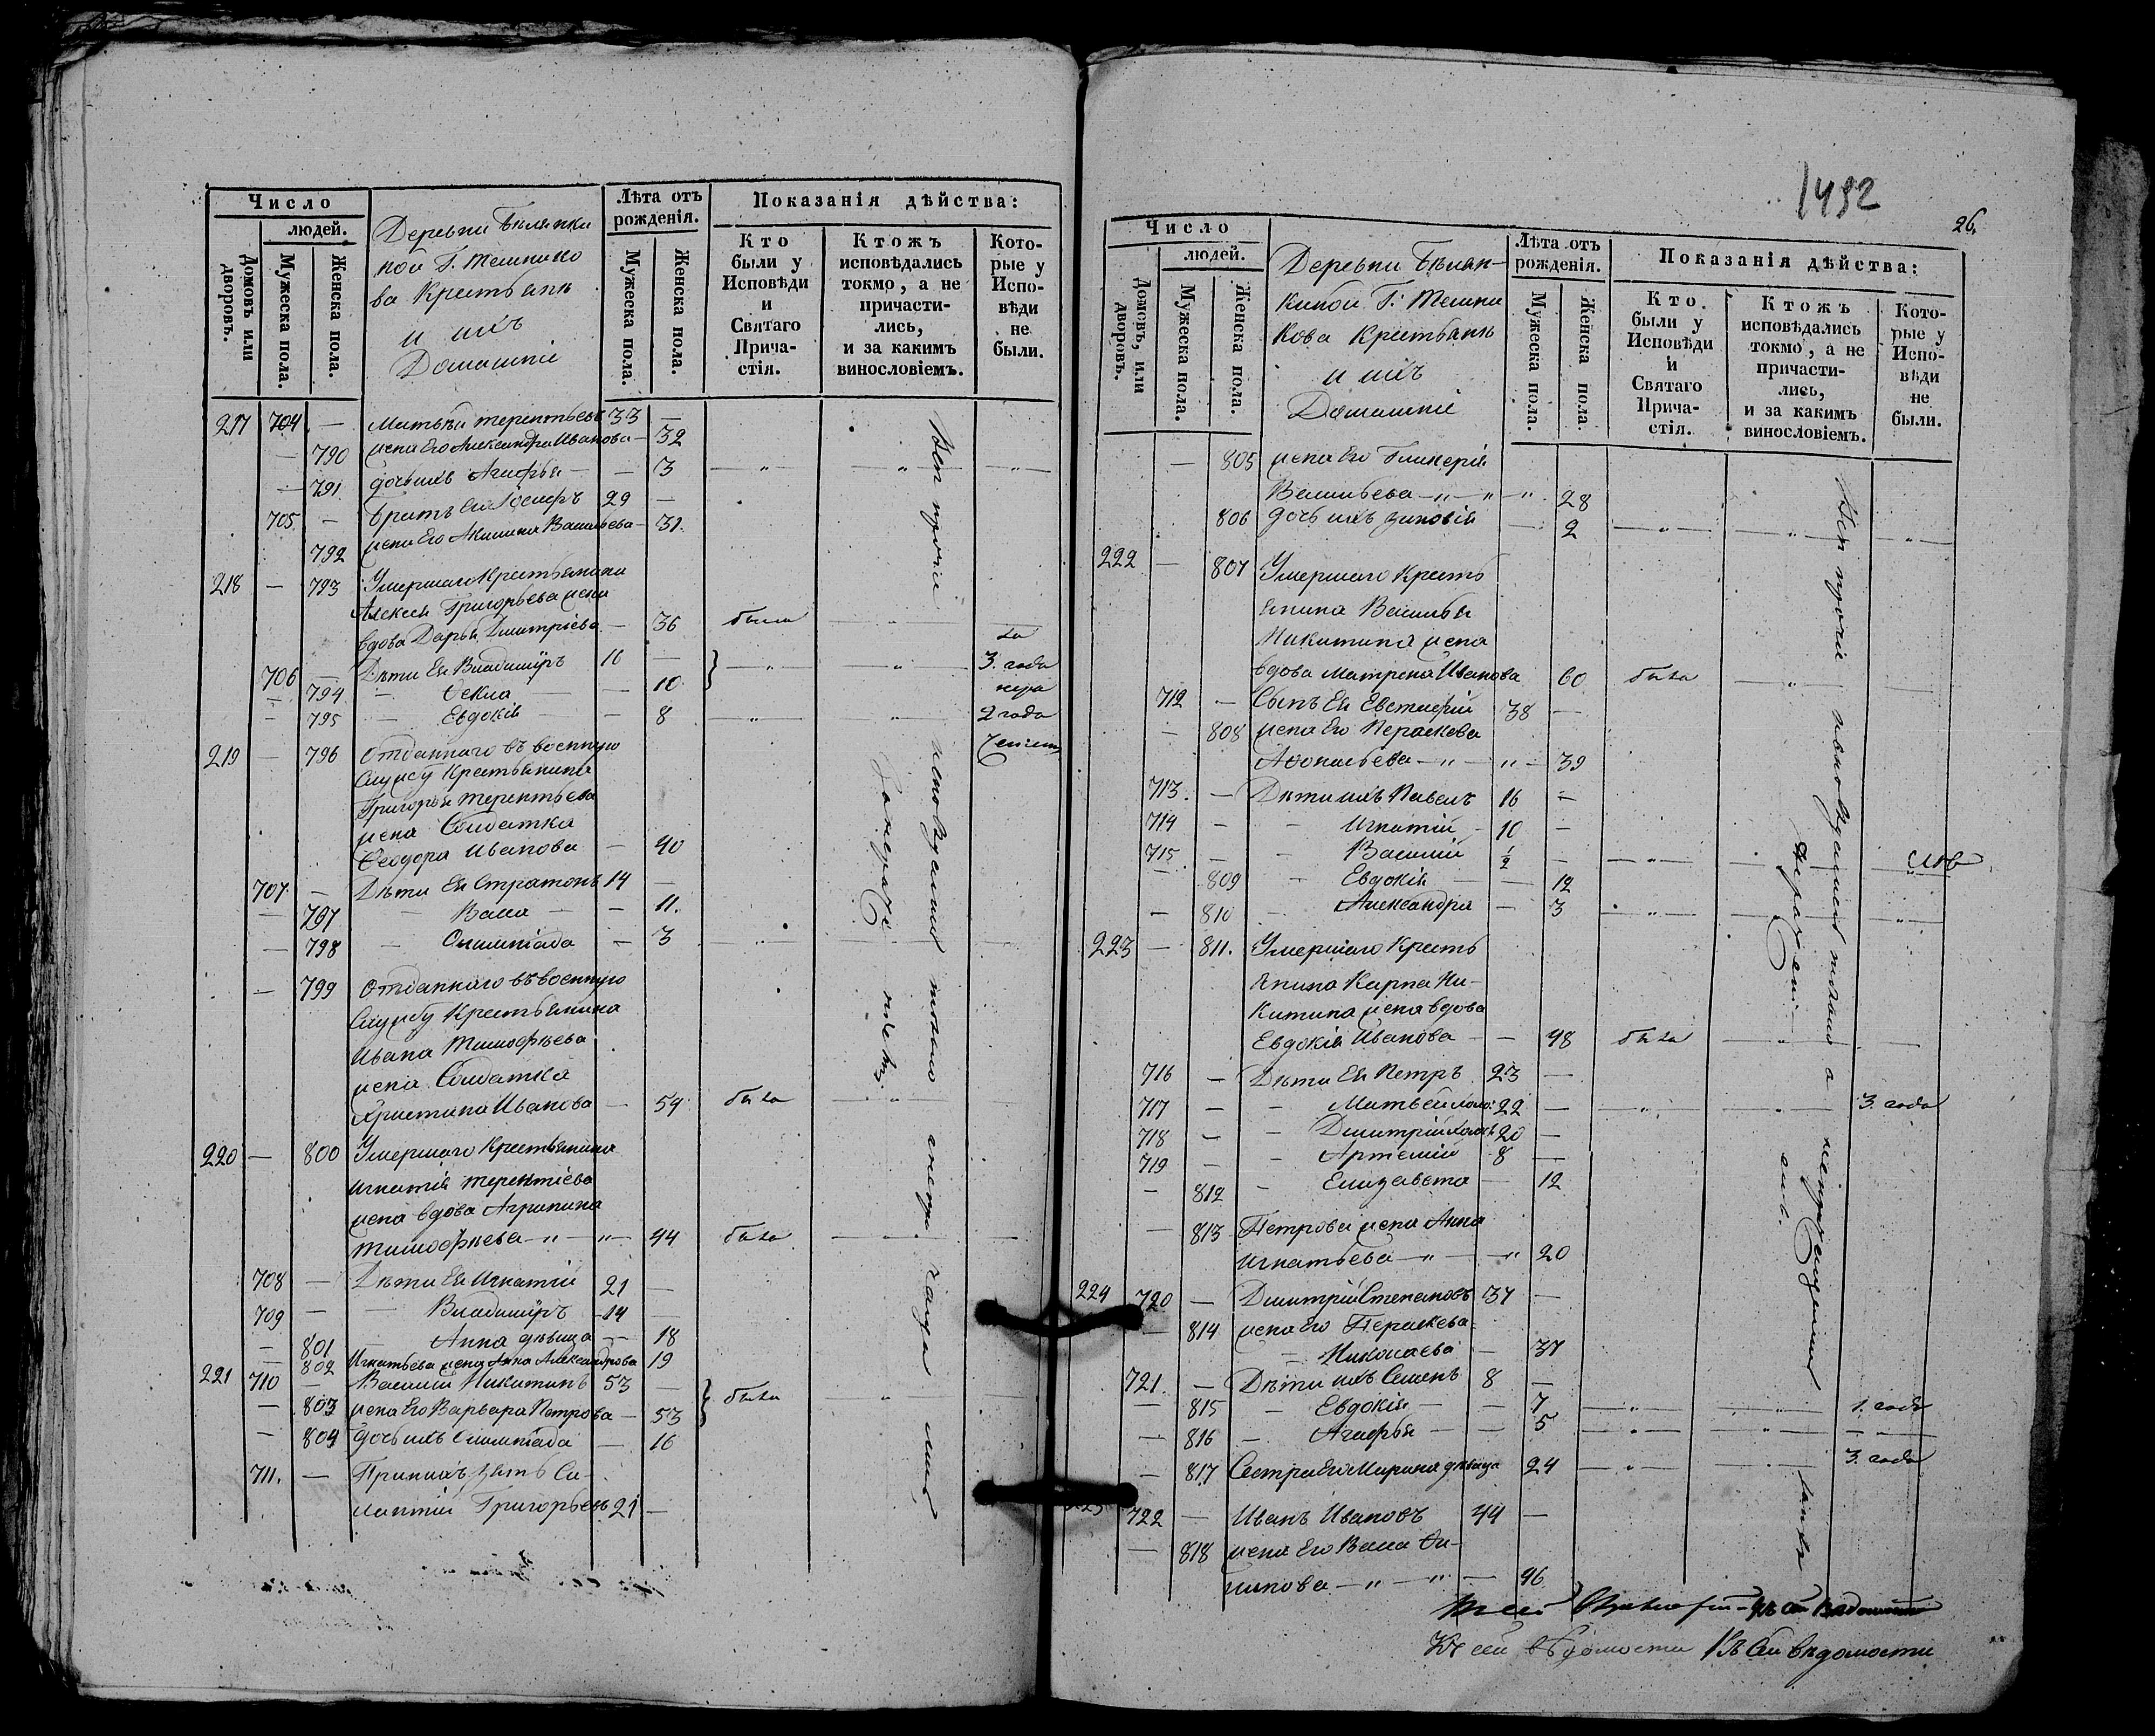 Число
людей.
Домовъ или дворовъ.
Мужеска пола.
Женска пола.
Деревни Белянки
ной Г. Тешнико
ва Крестьяне
и ихъ
Домашніе
Лѣта отъ рожденія.
Мужеска пола.
Женска пола.
Показанія дѣйства:
Кто были у Исповѣди и Святаго Причастія.
Ктожъ исповѣдались токмо, а не причастились, и за какимъ винословіемъ.
Которые у Исповѣди не были.
217 704 — Матвѣй Терентьевъ 33 —
— 790 жена Его Александра Иванова — 32
— 791 дочь ихъ Агафья — 3
705 — братъ Его Іосифъ 29 —
792 жена Его Акилина Васильева — 31.
218 — 793 Умершаго Крестьянина
Алексея Григорьева жена
вдова Дарья Дмитріева — 36 была
706 — Дѣти Ея Владиміръ 16 — 3. года
— 794 — Фекла — 10
— 795 — Евдокія — 8 2 года
219 — 796 Отданнаго въ военную
службу Крестьянина
Григорья Терентьева
жена Солдатка
Феодора Иванова — 40
707 — Дѣти Ея Стратонъ 14 —
— 797 — Васса — 11.
— 798 — Олимпіада — 3
— 799 Отданнаго въ военную
службу Крестьянина
Ивана Тимофѣева
жена Солдатка
Христина Иванова — 54 была
220 — 800 Умершаго Крестьянина
Игнатія Терентіева
жена вдова Агрипина
Тимофѣева — 44 была
708 — Дѣти Ея Игнатій 21 —
709 — — Владиміръ 14 —
— 801 — Анна дѣвица — 18
— 802 Игнатьева жена Анна Александрова 19
221 710 — Василій Никитинъ 53 —
— 803 жена Его Варвара Петрова — 53 были
— 804 дочь ихъ Олимпіада — 16
711. — Принятъ зять Си-
лантій Григорьевъ 21 —
Всѣ прочіе исповѣдались токмо
1492
26.
Число
людей.
Домовъ, или дворовъ.
Мужеска пола.
Женска пола.
Деревни Бѣлян-
киной Г. Тешни
кова Крестьяне
и ихъ
Домашніе
Лѣта отъ рожденія.
Мужеска пола.
Женска пола.
Показанія дѣйства:
Кто были у Исповѣди и Святаго Причастія.
Ктожъ исповѣдались токмо, а не причастились, и за какимъ винословіемъ.
Которые у Исповѣди не были.
— 805 жена Его Гликерія
Васильева — 28
806 дочь ихъ Зиновія — 2
222 — 807 Умершаго Кресть
янина Василья
Никитина жена
вдова Матрена Иванова 60 была
712 — Сынъ Ея Евстафій 38 —
— 808 жена Его Параскева
Афонасьева — 39
713. — Дѣти ихъ Павелъ 16 —
714 — — Игнатій 10 —
715 — — Василій ½ —
— 809 — Евдокія — 12
— 810 — Александра — 3
223 — 811. Умершаго Кресть
янина Карпа Ни-
китина жена вдова
Евдокія Иванова — 48 была
716 — Дѣти Ея Петръ 23 —
717 — — Матвей холос: 22 — 3. года
718 — — Дмитрій холост. 20 —
719 — — Артемій 8 —
— 812 — Елизавета — 12
— 813 Петрова жена Анна
Игнатьева — 20
224 720 — Дмитрій Степановъ 37 —
— 814 жена Его Параскева
Николаева — 37
721. — Дѣти ихъ Семенъ 8 —
— 815 — Евдокія — 7 1. года
— 816 — Агафья — 5
— 817 Сестра Его Марина дѣвица 24 3. года
225 722 — Иванъ Ивановъ 44 —
— 818 жена Его Васса Фи-
липова — 46
Всѣ прочіе исповѣдались токмо а
Къ сей вѣдомости Къ сей вѣдомости